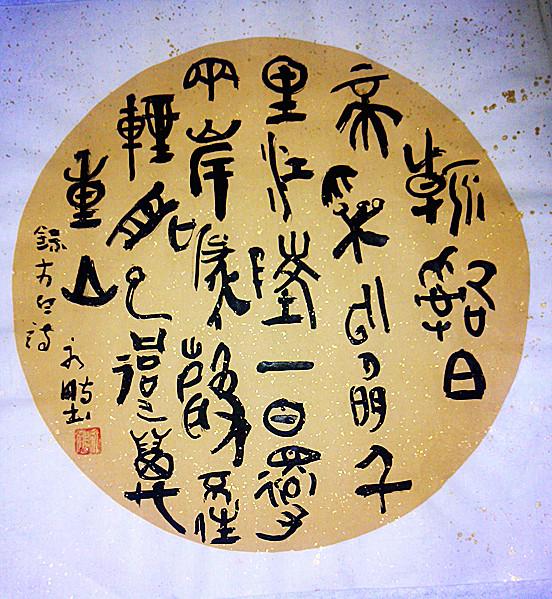 朝辭白
帝彩云間千
里江陵一日還
兩岸猿聲啼不住
輕舟已過萬
重山
錄李白詩